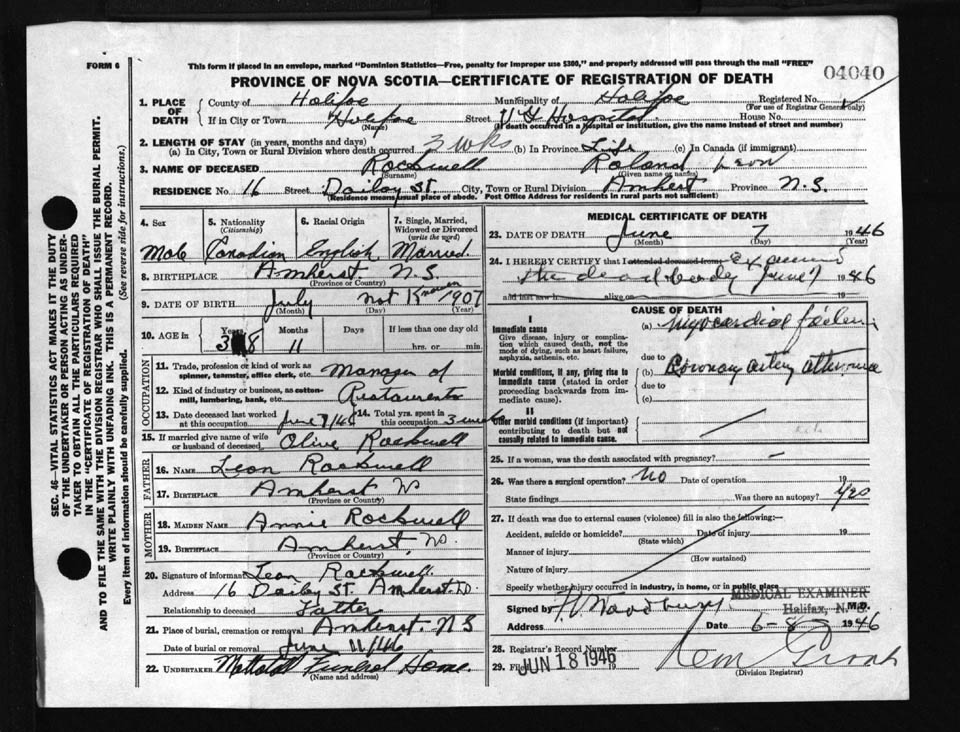 FORM 6
This form if placed in an envelope, marked "Dominion Statistics—Free, penalty for improper use $300," and properly addressed will pass through the mail "FREE"
PROVINCE OF NOVA SCOTIA—CERTIFICATE OF REGISTRATION OF DEATH
04040
1. PLACE OF DEATH
County of Halifax Municipality of Halifax Registered No.
(For use of Registrar General only)
If in City or Town Halifax Street V G Hospital House No.
(Name) (If death occurred in a hospital or institution, give the name instead of street and number)
2. LENGTH OF STAY (in years, months and days)
(a) In City, Town or Rural Division where death occurred 3 wks (b) In Province Life (c) In Canada (if immigrant)
3. NAME OF DECEASED Rockwell Roland Leon
(Surname) (Given name or names)
RESIDENCE No. 16 Street Dailey St. City, Town or Rural Division Amherst Province N.S.
(Residence means usual place of abode. Post Office Address for residents in rural parts not sufficient)
4. Sex 5. Nationality (Citizenship) 6. Racial Origin 7. Single, Married, Widowed or Divorced (write the word)
Male Canadian English Married.
8. BIRTHPLACE Amherst N.S.
(Province or Country)
9. DATE OF BIRTH July not Known 1907
(Month) (Day) (Year)
10. AGE in Years Months Days If less than one day old
38 11 hrs. or min.
OCCUPATION
11. Trade, profession or kind of work as spinner, teamster, office clerk, etc. Manager of
12. Kind of industry or business, as cotton-mill, lumbering, bank, etc. Restaurants
13. Date deceased last worked at this occupation June 7/46 14. Total yrs. spent in this occupation 3
15. If married give name of wife or husband of deceased Olive Rockwell
FATHER
16. NAME Leon Rockwell
17. BIRTHPLACE Amherst NS
(Province or Country)
MOTHER
18. MAIDEN NAME Annie Rockwell
19. BIRTHPLACE Amherst, NS.
(Province or Country)
20. Signature of informant Leon Rockwell.
Address 16 Dailey ST. Amherst NS.
Relationship to deceased Father
21. Place of burial, cremation or removal Amherst. N S
Date of burial or removal June 11/46
22. UNDERTAKER Mattatall Funeral Home.
(Name and address)
MEDICAL CERTIFICATE OF DEATH
23. DATE OF DEATH June 7 1946
(Month) (Day) (Year)
24. I HEREBY CERTIFY that I attended deceased from Examined
the dead body June 7 1946
and last saw h alive on 19
CAUSE OF DEATH
I
Immediate cause
Give disease, injury or complication which caused death, not the mode of dying, such as heart failure, asphyxia, asthenia, etc.
(a) Myocardial failure
due to
Morbid conditions, if any, giving rise to immediate cause (stated in order proceeding backwards from immediate).
(b) Coronary artery atheroma
due to
(c)
II
Other morbid conditions (if important) contributing to death but not causally related to immediate cause.
25. If a woman, was the death associated with pregnancy? –
26. Was there a surgical operation? No Date of operation 19
State findings Was there an autopsy? Yes
27. If death was due to external causes (violence) fill in also the following:—
Accident, suicide or homicide? Date of injury 19
(State which)
Manner of injury
(How sustained)
Nature of injury
Specify whether injury occurred in industry, in home, or in public place
MEDICAL EXAMINER
Halifax, N.S.
Signed by Woodbury M.D.
Address Date 6-8 1946
28. Registrar's Record Number
29. Filed JUN 18 1946
(Division Registrar)
SEC. 46—VITAL STATISTICS ACT MAKES IT THE DUTY
OF THE UNDERTAKER OR PERSON ACTING AS UNDER-
TAKER TO OBTAIN ALL THE PARTICULARS REQUIRED
IN THE "CERTIFICATE OF REGISTRATION OF DEATH"
AND TO FILE THE SAME WITH THE DIVISION REGISTRAR WHO SHALL ISSUE THE BURIAL PERMIT.
WRITE PLAINLY WITH UNFADING INK. THIS IS A PERMANENT RECORD.
Every item of information should be carefully supplied. (See reverse side for instructions.)